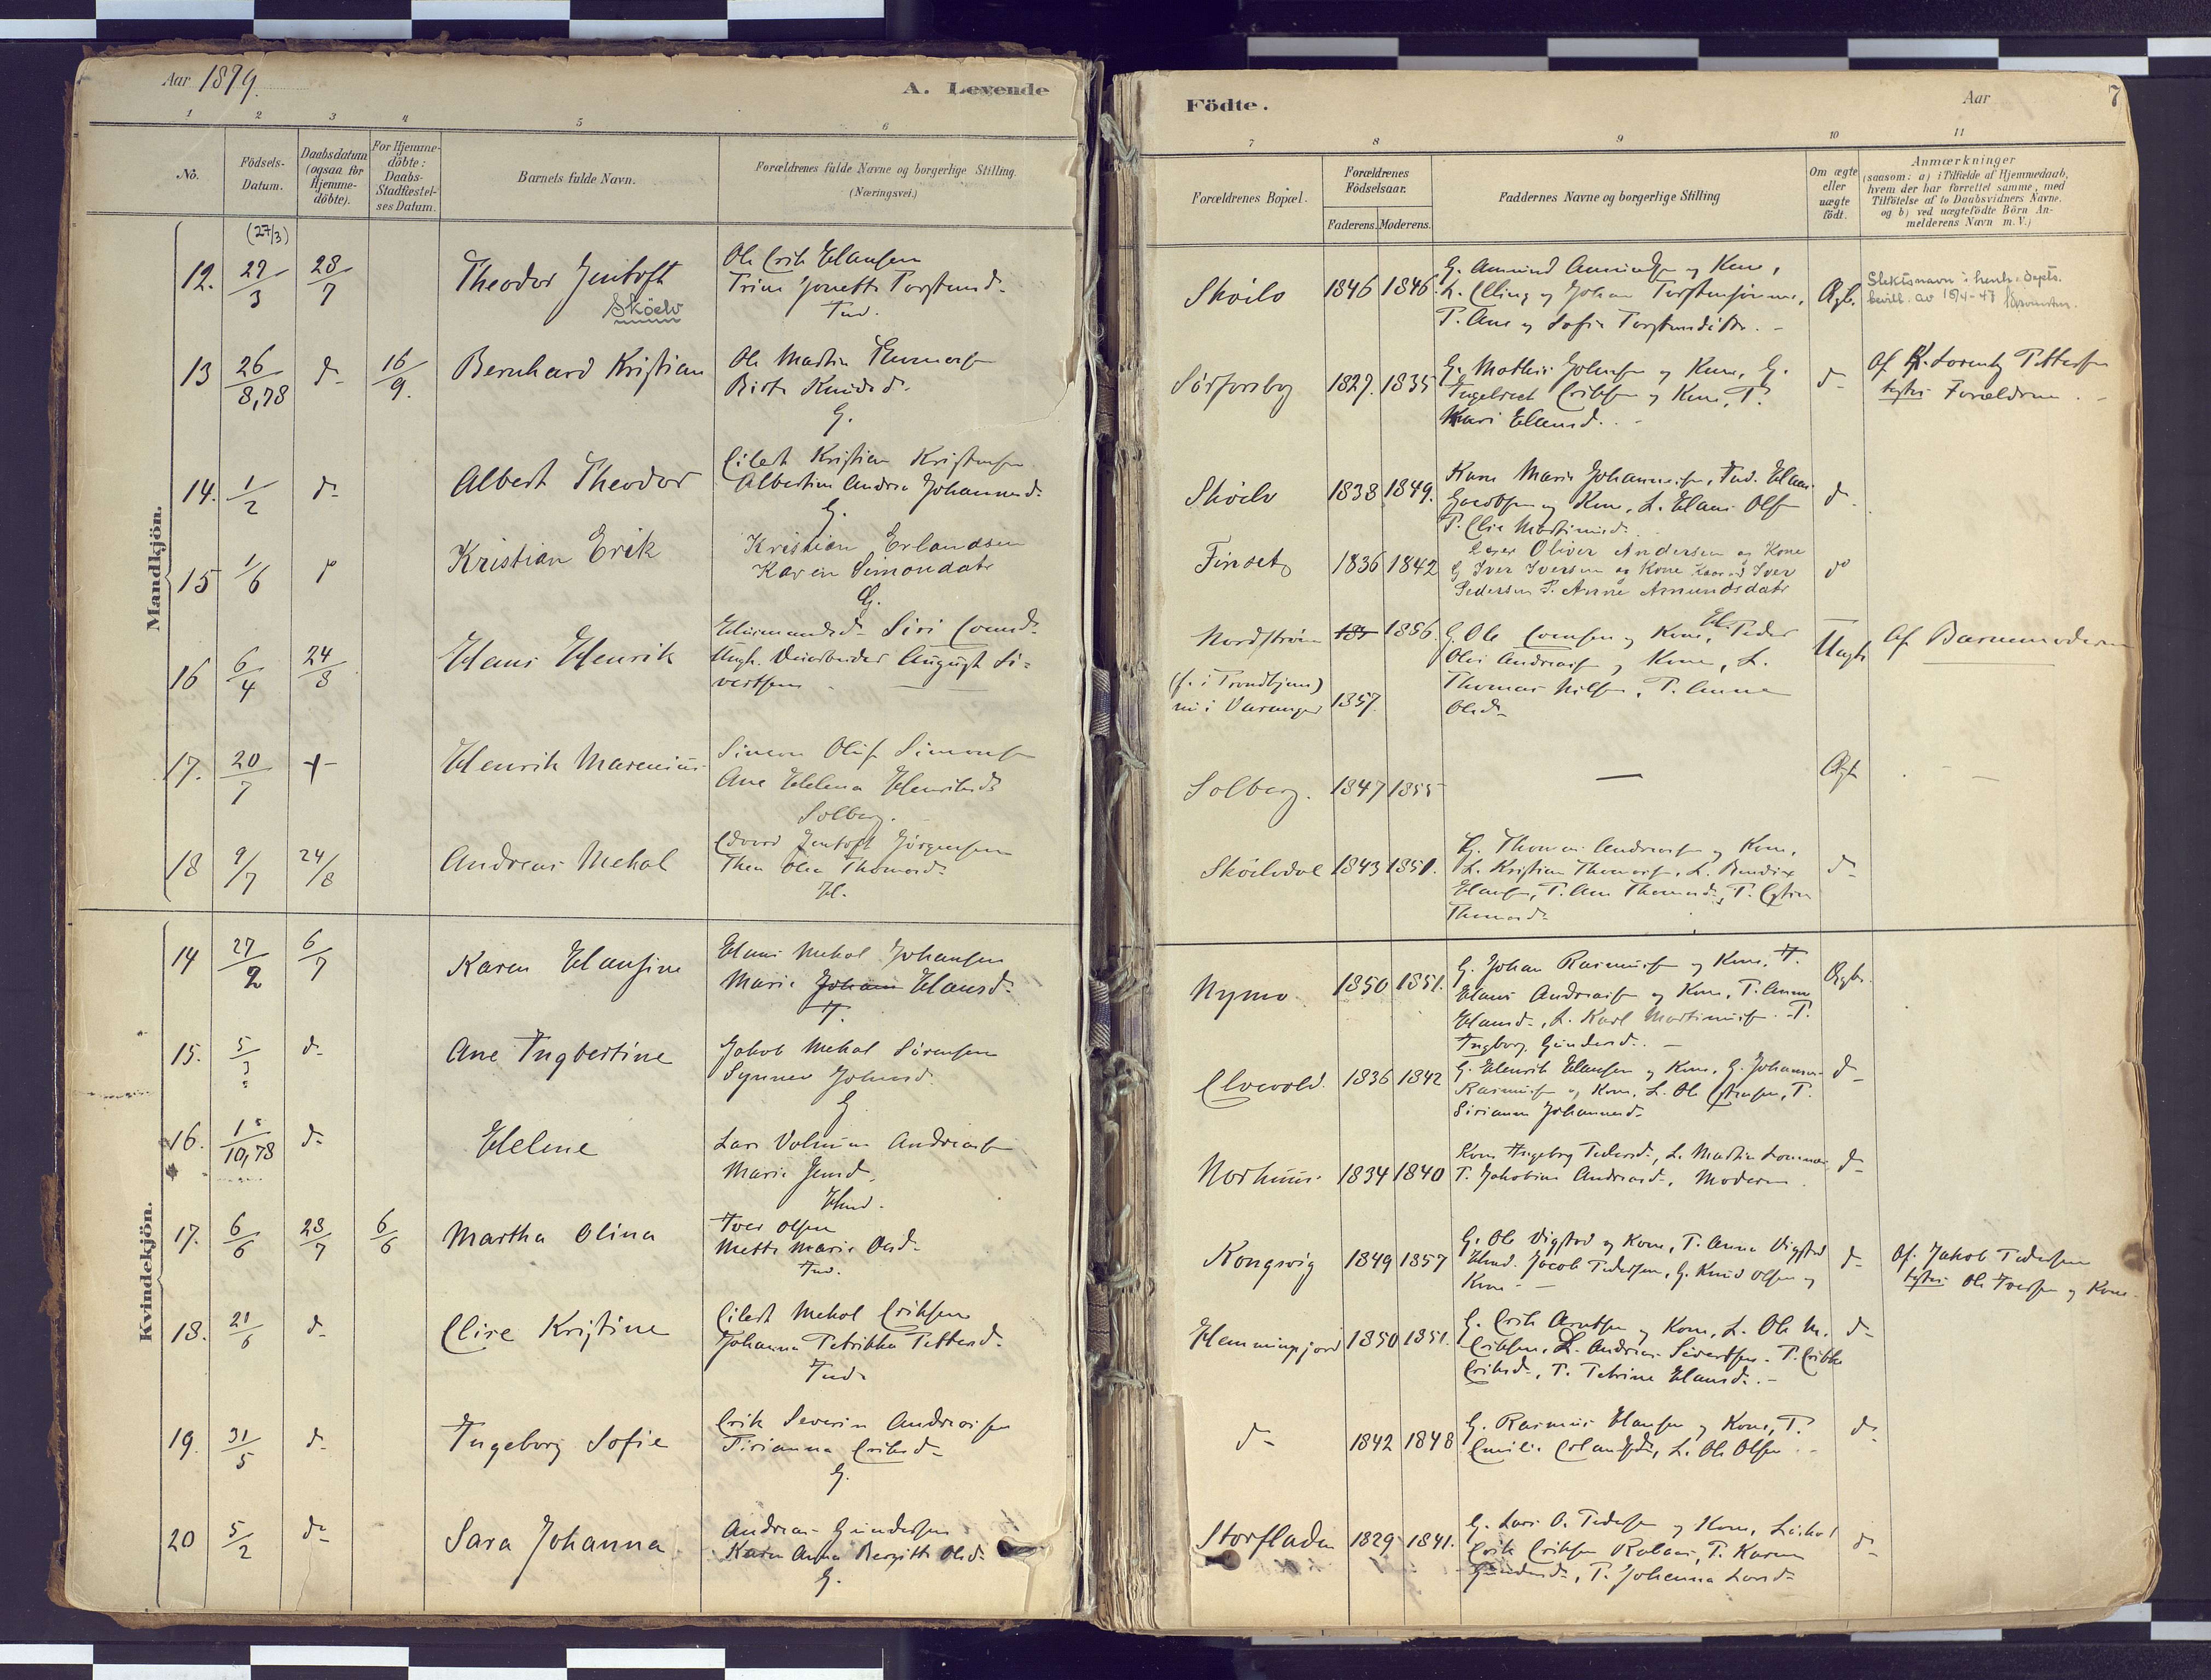 Aar 1879.
A. Levende
Födte.
Aar
7
1 2 3 4 5 6
7 8 9 10 11
No.
Födsels-
Datum.
Daabsdatum
(ogsaa for
Hjemme-
döbte).
For Hjemme-
döbte:
Daabs-
Stadfæstel-
ses Datum.
Barnets fulde Navn.
Forældrenes fulde Navne og borgerlige Stilling.
(Næringsvei.)
Forældrenes Bopæl.
Forældrenes
Födselsaar.
Faderens. Moderens.
Faddernes Navne og borgerlige Stilling
Om ægte
eller
uægte
födt.
Anmærkninger
(saasom: a) i Tilfælde af Hjemmedaab,
hvem der har forrettet samme, med
Tilföielse af to Daabsvidners Navne.
og b) ved uægtefödte Börn An-
melderens Navn m. V.)
Mandkjön.
(27/3)
12. 29/3 28/7
Theodor Jentoft
Sköelv
Ole Erik Hansen
Trine Jonette Torstensd.
Ind.
Sköelv 1846 1846.
G. Amund Amundsen og Kone,
L. Elling og Johan
T. Ane og Sofie
Ægt.
Slektsnavn i henh. Depts.
bevill. av 18/4-47
13 26/8,78 d- 16/9.
Bernhard Kristian
Ole Martin Thomasen
Birte Knudsd.
G.
Sörforsbog 1827. 1835
G. Mathis Johnsen og Kone, G.
Ingebret Eriksen og Kone, T.
Kari Hansd.
d-
Af K. Lorentz Pettersen
test Forældrene.
14. 1/2 d-
Albert Theodor
Eilert Kristian Kristensen
Albertine Andrea Johannesd.
G.
Sköelv 1838 1849.
Kone Marie Johannesen, Ind. Hans
Jacobsen og Kone, L. Hans Olsen
T. Elie Martinusd.
d-
15 1/6
Kristian Erik
Kristian Erlandsen
Karen Simondatr
G.
Finset 1836 1842
Oliver Andersen og Kone
G Iver Iversen og Kone Iver
Pedersen P. Anne Amundsdatr
do
16 6/4 24/8
Hans Henrik
Siri
Ungk. August Si-
vertsen
Nordström 185 1856.
(f. i Trondhjem)
nu i Varanger 1857.
G. Ole og Kone, Peder
Olai Andreasen og Kone, L.
Thomas Nilsen, T. Anna
Olsd-
Uægt
Af Barnemoderen
17. 20/7
Henrik Marenius
Simon Oluf Simonsen
Ane Helena Henriksd.
Solberg.
Solberg. 1847 1855
—
Ægt
18 9/7 24/8
Andreas Mekal
Edvard Jentoft Jörgensen
Thea Olea Thomasd.
H.
Sköelvdal 1843 1851.
G. Thomas Andreasen og Kone,
L. Kristian Thomasen, L. Bendix
Hansen, T. Ane Thomasd., T.
Thomasd-
d-
Kvindekjön.
14 27/2 6/7
Karen Hansine
Hans Mekal Johansen
Marie Johan Hansd.
Nymo 1850 1851.
G. Johan Rasmusen og Kone,
Hans Andreasen og Kone, T. Anne
Hansd., L. Karl Martinusen. T.
Ingborg Gundersd. —
Ægte
15. 5/3 d-
Ane Ingbertine
Jakob Mekal Sörensen
Synnev Johnsd.
G
Elvevold. 1836 1842
G. Henrik Hansen og Kone, G. Johannes
Rasmusen og Kone, L. Ole, T.
Sirianna Johannesd.
d-
16. 15/10,78 d-
Helene
Lars Andreasen
Marie Jensd.
Huusm.
Norhuus 1834 1840
Kone Ingeborg Pedersd., L. Martin
T. Jakobine Andreasd., Moderen.
d-
17. 6/6 28/7 6/6
Martha Olina
Iver Olsen
Mette Marie Olsd-
Ind.
Kongsvig 1849 1857
G. Ole Vigstad og Kone, T. Anna Vigstad
Jacob Pedersen, G. Knud Olsen og
Kone -
d-
Af Jakob Pedersen
Ole Iversen og Kone.
18. 21/6 d-
Elise Kristine
Eilert Mekal Eriksen
Johanna Petrikka Pettersd.
Ind.
Hemmingsjord 1850 1851.
G. Erik Arntsen og Kone, L. Ole M.
Eriksen, L. Andreas Sivertsen. T.
Eriksd., T. Petrine Hansd. -
d-
19. 31/5 d-
Ingeborg Sofie
Erik Severin Andreasen
Sirianna Eriksd-
G.
d- 1842 1848
G. Rasmus Hansen og Kone, T.
Emilie, L. Ole Olsen
d-
20 5/2 d-
Sara Johanna
Andreas Gundersen
Karen Anna Bergitte Olsd.
G.
Storfladen 1829 1841.
G. Lars O. Pedersen og Kone,
Erik Eriksen, T. Karen
Gundersd., T. Johanna Larsd-
d-